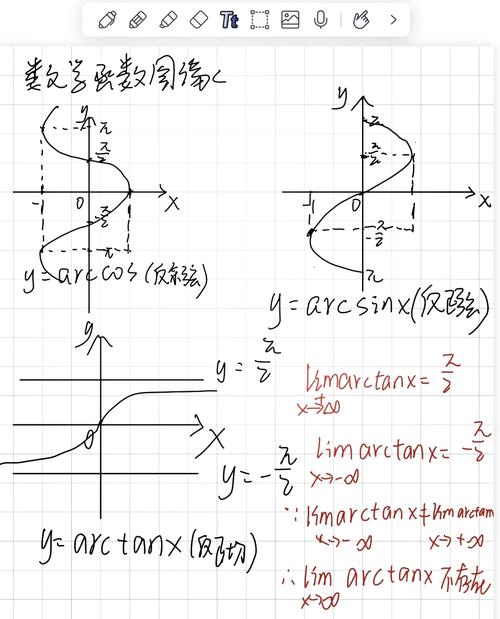 Tt
数学函数图像
y
π
π/2
-1
0
x
π/2
π
y=arccos(反余弦)
y
π
π/2
-1
0
x
-π/2
π
y=arcsinx(反正弦)
y
0
x
y=π/2
y=-π/2
y=arctanx(反正切)
lim arctanx=π/2
x→+∞
lim arctanx=-π/2
x→-∞
∵lim arctanx≠lim arctan
x→-∞ x→+∞
∴lim arctanx不存在
x→∞